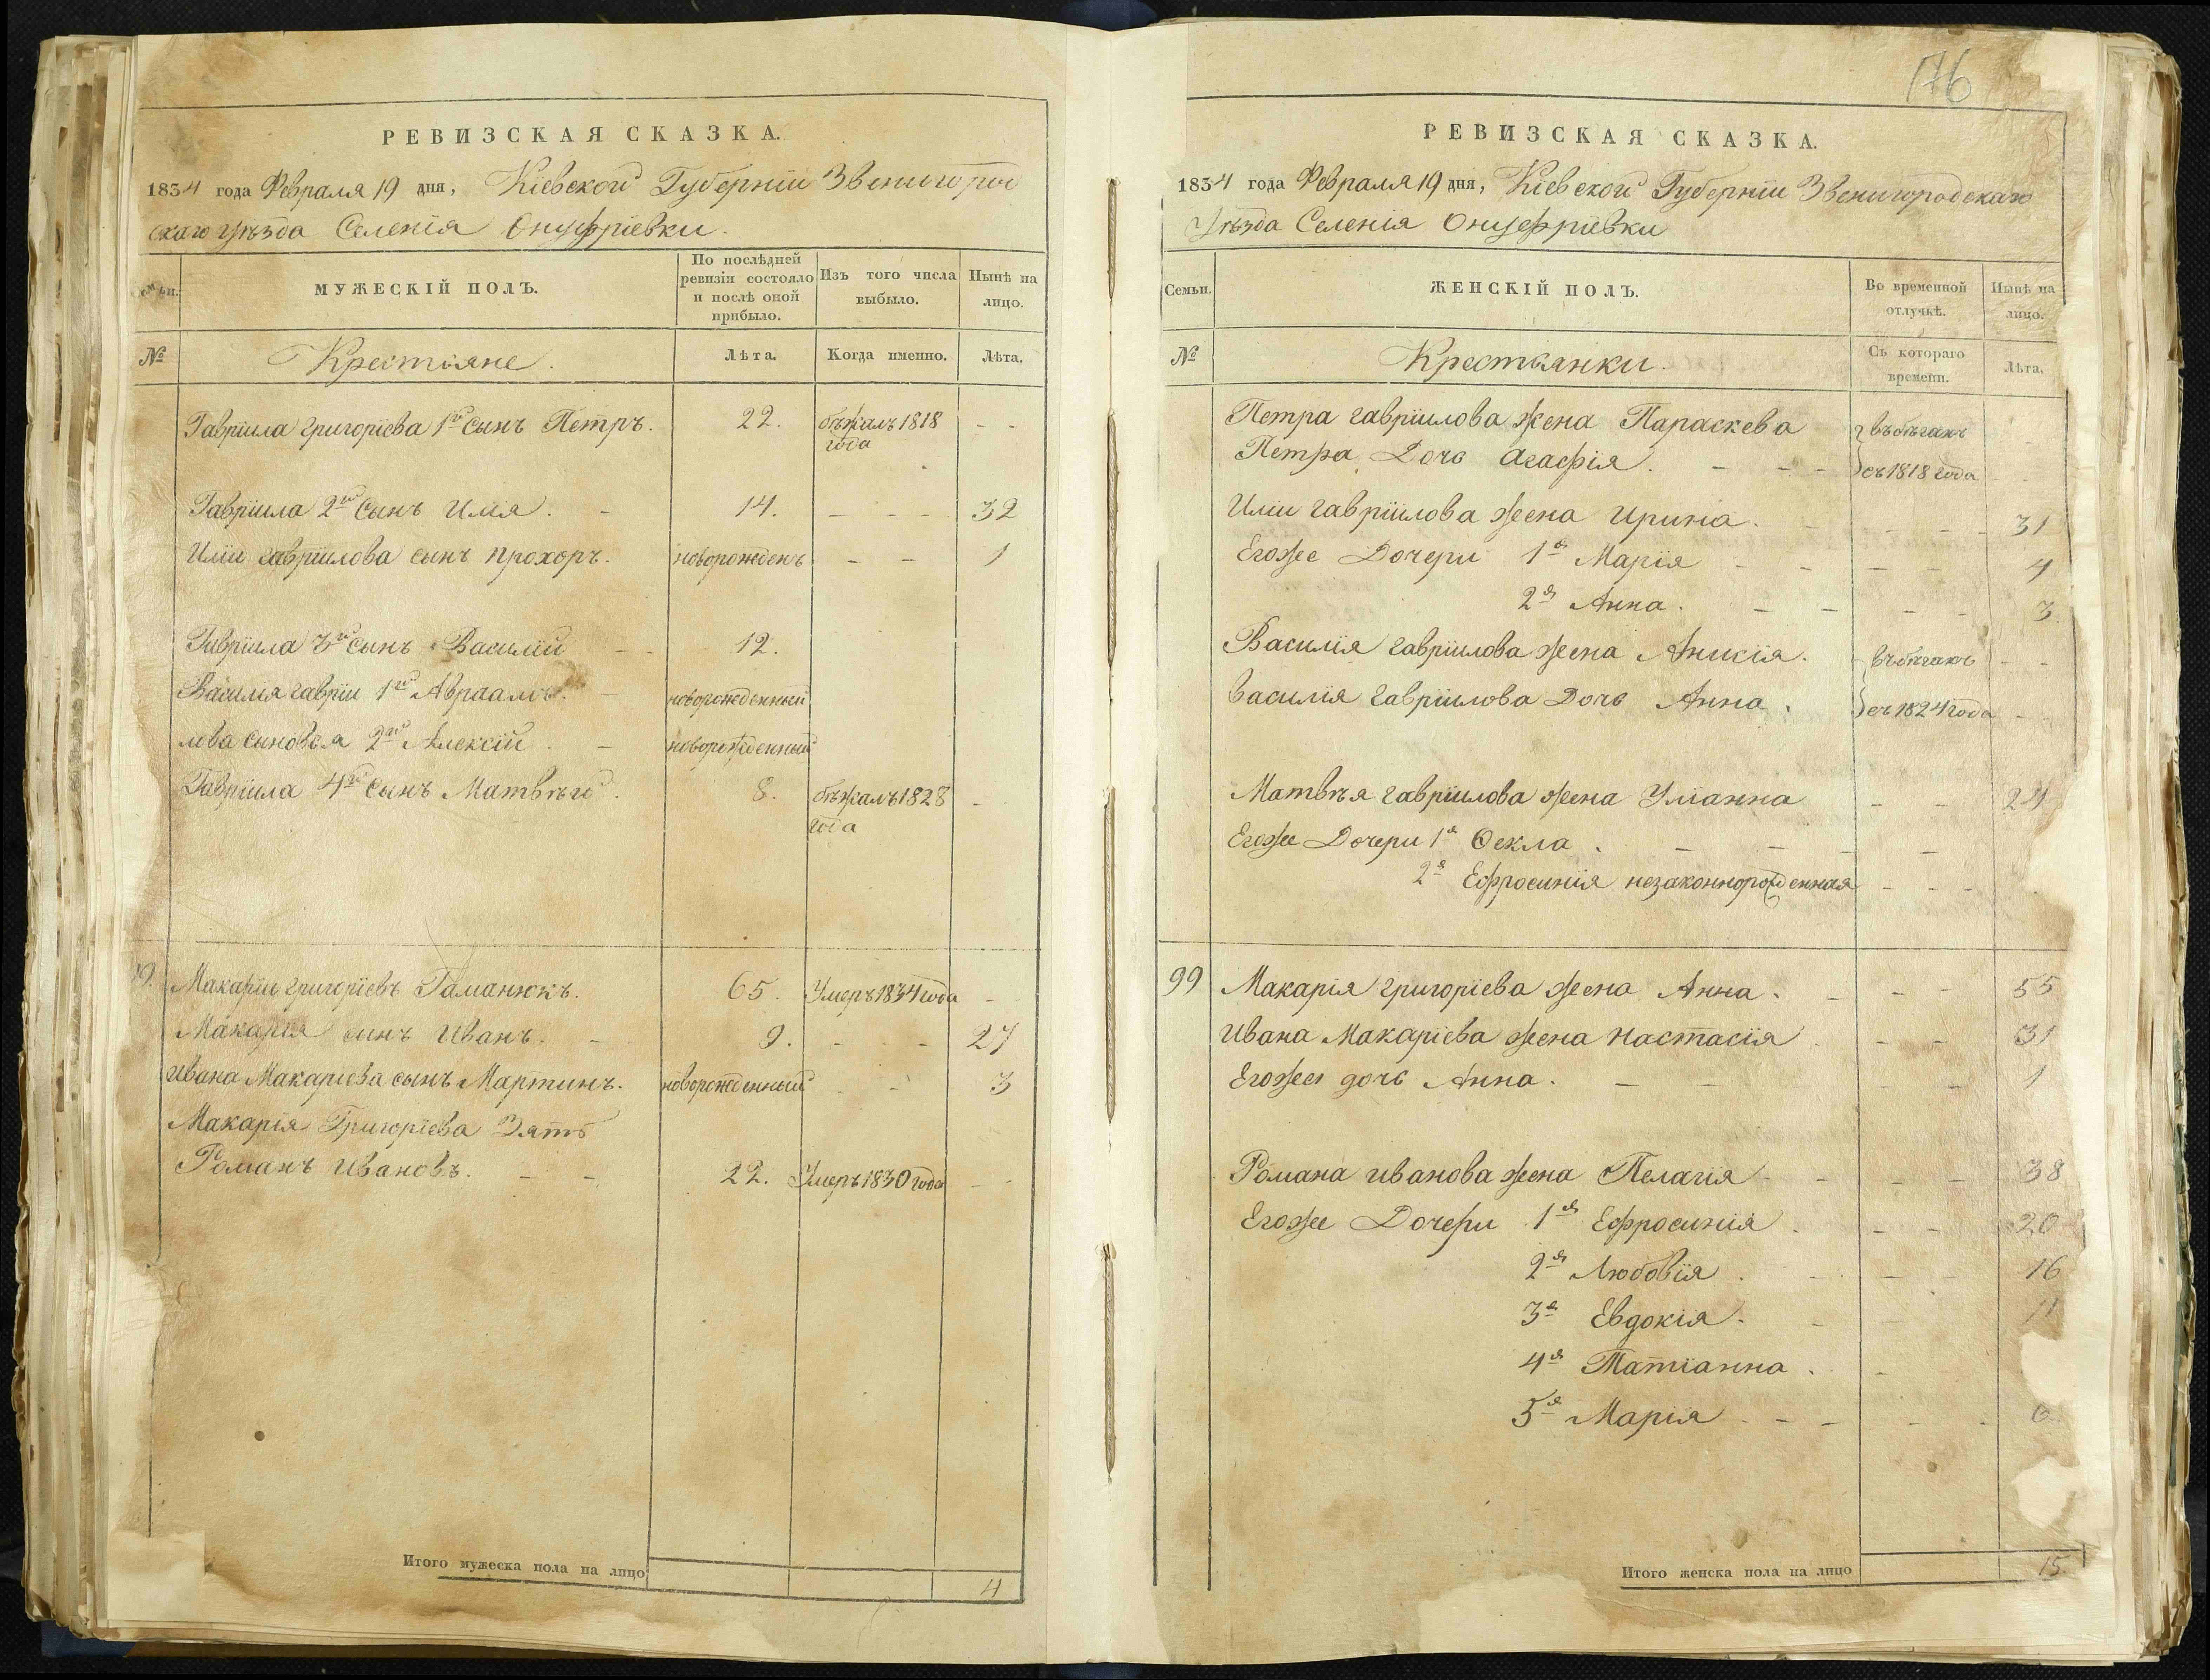 РЕВИЗСКАЯ СКАЗКА.
1834 года Февраля 19 дня, Кіевской Губерніи Звенигород
скаго уѣзда Селенія Онуфріевки.
МУЖЕСКІЙ ПОЛЪ.
По послѣдней ревизіи состояло и послѣ оной прибыло.
Изъ того числа выбыло.
Нынѣ на лицо.
№ Крестьяне. Лѣта. Когда именно. Лѣта.
Гавріила Григоріева 1й сынъ Петръ. 22. бѣжалъ 1818 года - -
Гавріила 2й сынъ Илія. - 14. - - - 32
Иліи гавріилова сынъ Прохоръ. новорожденъ - - 1
Гавріила 3й сынъ Василій - - 12.
Василія гаврiи 1й Авраамъ. - новорожденный
лова сыновья 2й Алексій - новорожденный
Гавріила 4й сынъ Матвѣй. 8. бѣжалъ 1828 года -
Макарій григоріевъ Гаманюкъ. 65. Умеръ 1834 года -
Макарія сынъ Иванъ. - 9. - - 27
Ивана Макаріева сынъ Мартинъ. новорожденный - 3
Макарія Григоріева Зять
Романъ Ивановъ. - - 22. Умеръ 1830 года - -
Итого мужеска пола на лицо 4
176
РЕВИЗСКАЯ СКАЗКА.
1834 года Февраля 19 дня, Кіевской Губерніи Звенигородскаго
Уѣзда Селенія Онуфріевки
Семьи.
ЖЕНСКІЙ ПОЛЪ.
Во временной отлучкѣ.
Нынѣ на лицо.
№ Крестьянки. Съ котораго времени. Лѣта.
Петра гавріилова жена Параскева въ бѣгахъ
Петра Дочь Агафія. - - - съ 1818 года
Иліи гавріилова жена Ирина. - - - 31
Егоже Дочери 1я Марія - - - - 4
2я Анна. - - - - 3
Василія гавріилова жена Аникія. въ бѣгахъ - -
Василія гавріилова Дочь Анна. съ 1824 года -
Матвѣя гавріилова жена Уліанна - - 24
Егоже Дочери 1я Ѳекла. - - - -
2я Ефросинія незаконнорожденная - - -
99 Макарія григоріева жена Анна. - - - 55
Ивана Макаріева жена Настасія - - 31
Егоже дочь Анна. - - - 1
Романа иванова жена Пелагія - - - - 38
Егоже Дочери 1я Ефросинія. - - 20
2я Любовія. - - - 16
3я Евдокія. - - 11
4я Татіанна. -
5я Марія - - - - - 6
Итого женска пола на лицо 15